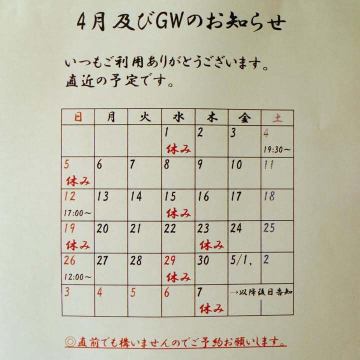 4月及びGWのお知らせ
いつもご利用ありがとうございます。
直近の予定です。
日 月 火 水 木 金 土
1 2 3 4
休み 19:30~
5 6 7 8 9 10 11
休み
12 13 14 15 16 17 18
17:00~ 休み
19 20 21 22 23 24 25
休み 休み
26 27 28 29 30 5/1, 2
12:00~ 休み
3 4 5 6 7 →以降後日告知
休み
◎直前でも構いませんのでご予約お願いします。